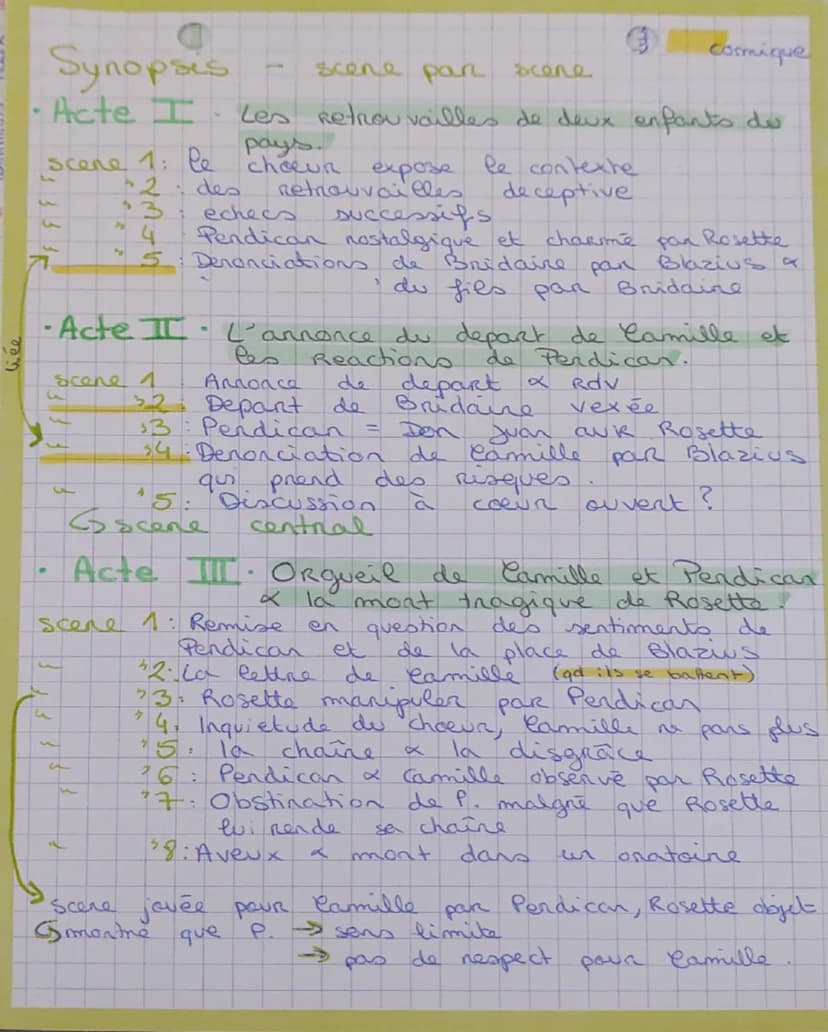 ③ comique
Synopsis - scene par scene
· Acte I . Les Retrouvailles de deux enfants du
pays.
scene 1: le choeur expose le contexte
" "2 : des retrouvailles deceptive
" "3 : echecs successifs
" "4 Perdican nostalgique et charmé par Rosette
" "5 : Denonciations de Bridaine par Blazius &
du fils par Bridaine
liée
· Acte II . L'annonce du depart de Camille et
les Reactions de Perdican.
scene 1 Annonce de depart & RDV
" "2 : Depart de Bridaine vexée
" "3 : Perdican = Don Juan avk Rosette
" "4 : Denonciation de Camille par Blazius
qui prend des risques.
" "5 : Discussion à coeur ouvert ?
↳ scene central
· Acte III . Orgueil de Camille et Perdican
& la mort tragique de Rosette.
scene 1 : Remise en question des sentiments de
Perdican et de la place de Blazius
" "2 : La lettre de Camille (qd ils se battent)
" "3 : Rosette manipuler par Perdican
" "4 : Inquietude du choeur, Camille ne pars plus
" "5 : la chaîne & la disgrâce
" "6 : Perdican & Camille observé par Rosette
" "7 : Obstination de P. malgré que Rosette
lui rende sa chaîne
" "8 : Aveux & mort dans un oratoire
scene jouée pour Camille par Perdican, Rosette objet
↳ montre que P. → sens limite
→ pas de respect pour Camille.